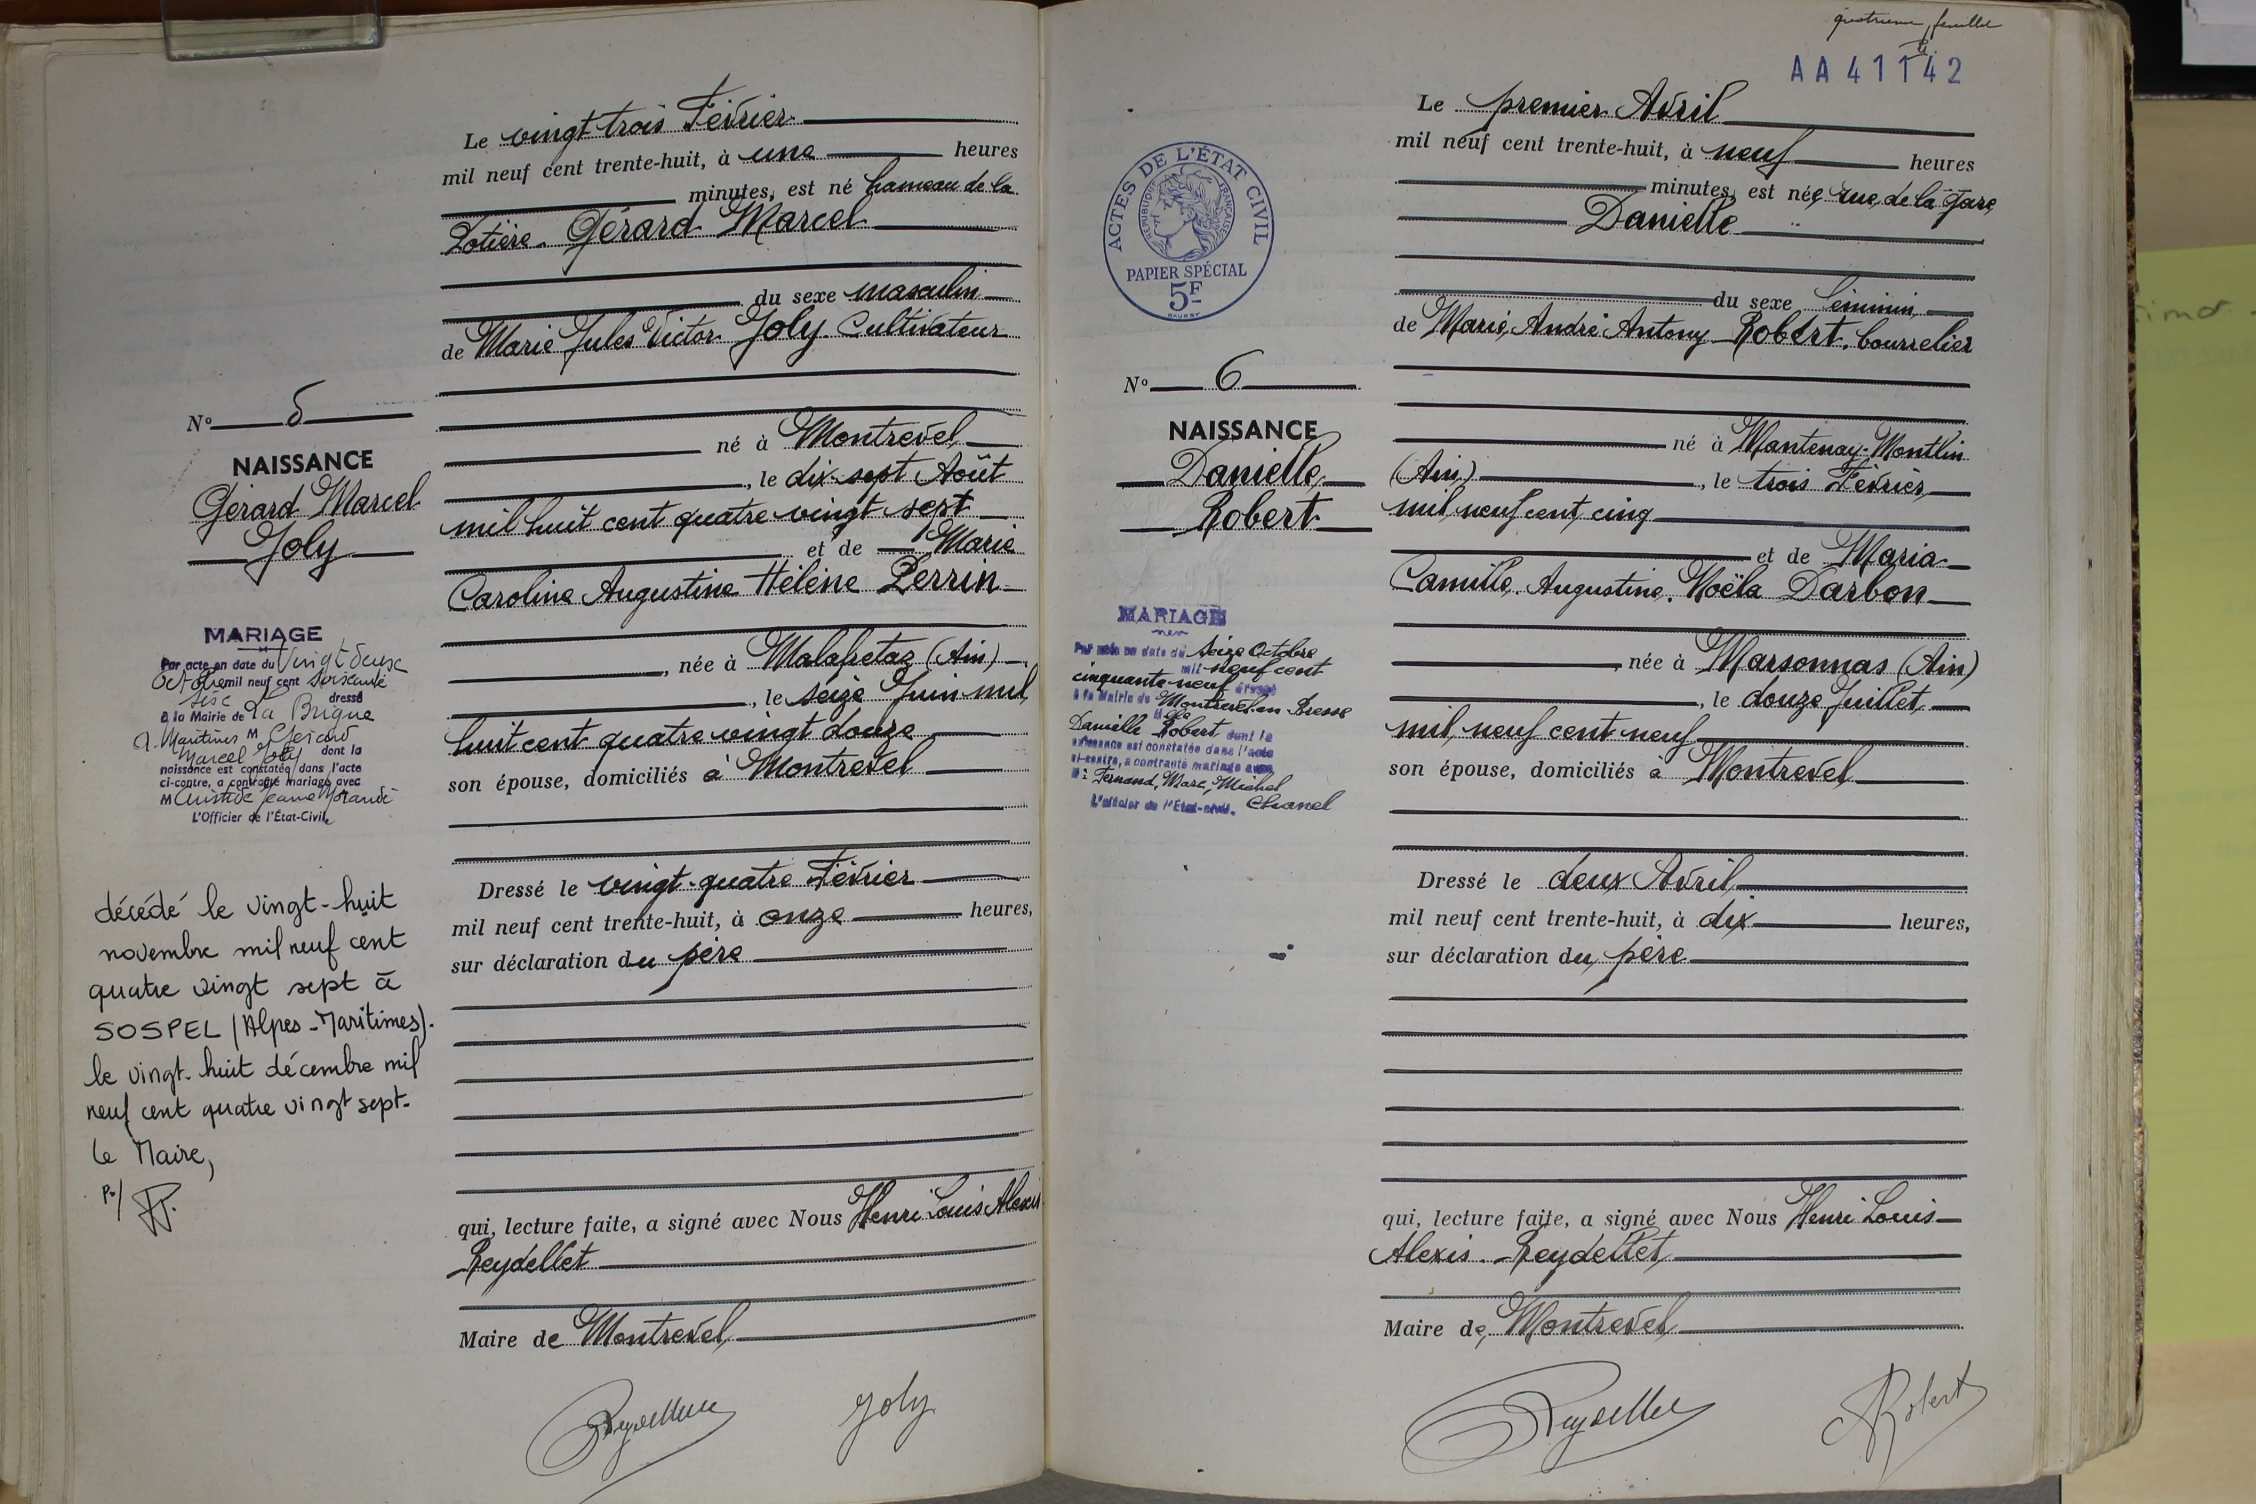 Le vingt trois Février
mil neuf cent trente-huit, à une heures
minutes, est né hameau de la
Potière. Gérard Marcel
du sexe masculin
de Marie Jules Victor Joly Cultivateur
né à Montrevel
, le dix-sept Août
mil huit cent quatre vingt sept
et de Marie
Caroline Augustine Hélène Perrin
, née à Malafretaz (Ain)
, le seize Juin mil
huit cent quatre vingt douze
son épouse, domiciliés à Montrevel
Dressé le vingt-quatre Février
mil neuf cent trente-huit, à onze heures,
sur déclaration du père
qui, lecture faite, a signé avec Nous Henri Louis Alexis
Reydellet
Maire de Montrevel
Reydellet Joly
N° 5
NAISSANCE
Gérard Marcel
Joly
MARIAGE
Par acte en date du Vingt deux
octobre mil neuf cent soixante
six dressé
à la Mairie de La Brigue
A. Maritimes M Gérard
Marcel Joly dont la
naissance est constatée dans l'acte
ci-contre, a contracté mariage avec
M Jeanne
L'Officier de l'État-Civil,
décédé le vingt-huit
novembre mil neuf cent
quatre vingt sept à
SOSPEL (Alpes-Maritimes).
le vingt-huit décembre mil
neuf cent quatre vingt sept.
Le Maire,
P./
quatrieme feuille
AA41142
Le premier Avril
mil neuf cent trente-huit, à neuf heures
minutes, est née, rue de la Gare
Danielle
du sexe féminin
de Marie, André Antony Robert, bourrelier
né à Mantenay-Montlin
(Ain) , le trois Février
mil neuf cent cinq
et de Maria
Camille, Augustine, Noëla Darbon
née à Marsonnas (Ain)
, le douze Juillet
mil neuf cent neuf
son épouse, domiciliés à Montrevel
Dressé le deux Avril
mil neuf cent trente-huit, à dix heures,
sur déclaration du père
qui, lecture faite, a signé avec Nous Henri Louis
Alexis Reydellet
Maire de Montrevel
Reydellet Robert
ACTES DE L'ÉTAT CIVIL
RÉPUBLIQUE FRANÇAISE
PAPIER SPÉCIAL
5F
N° 6
NAISSANCE
Danielle
Robert
MARIAGE
Par acte en date du seize Octobre
mil neuf cent
cinquante neuf dressé
à la Mairie de Montrevel-en-Bresse
Mlle
Danielle Robert dont la
naissance est constatée dans l'acte
ci-contre, a contracté mariage avec
M: Fernand, Marc, Michel
L'officier de l'État-civil. Chanel